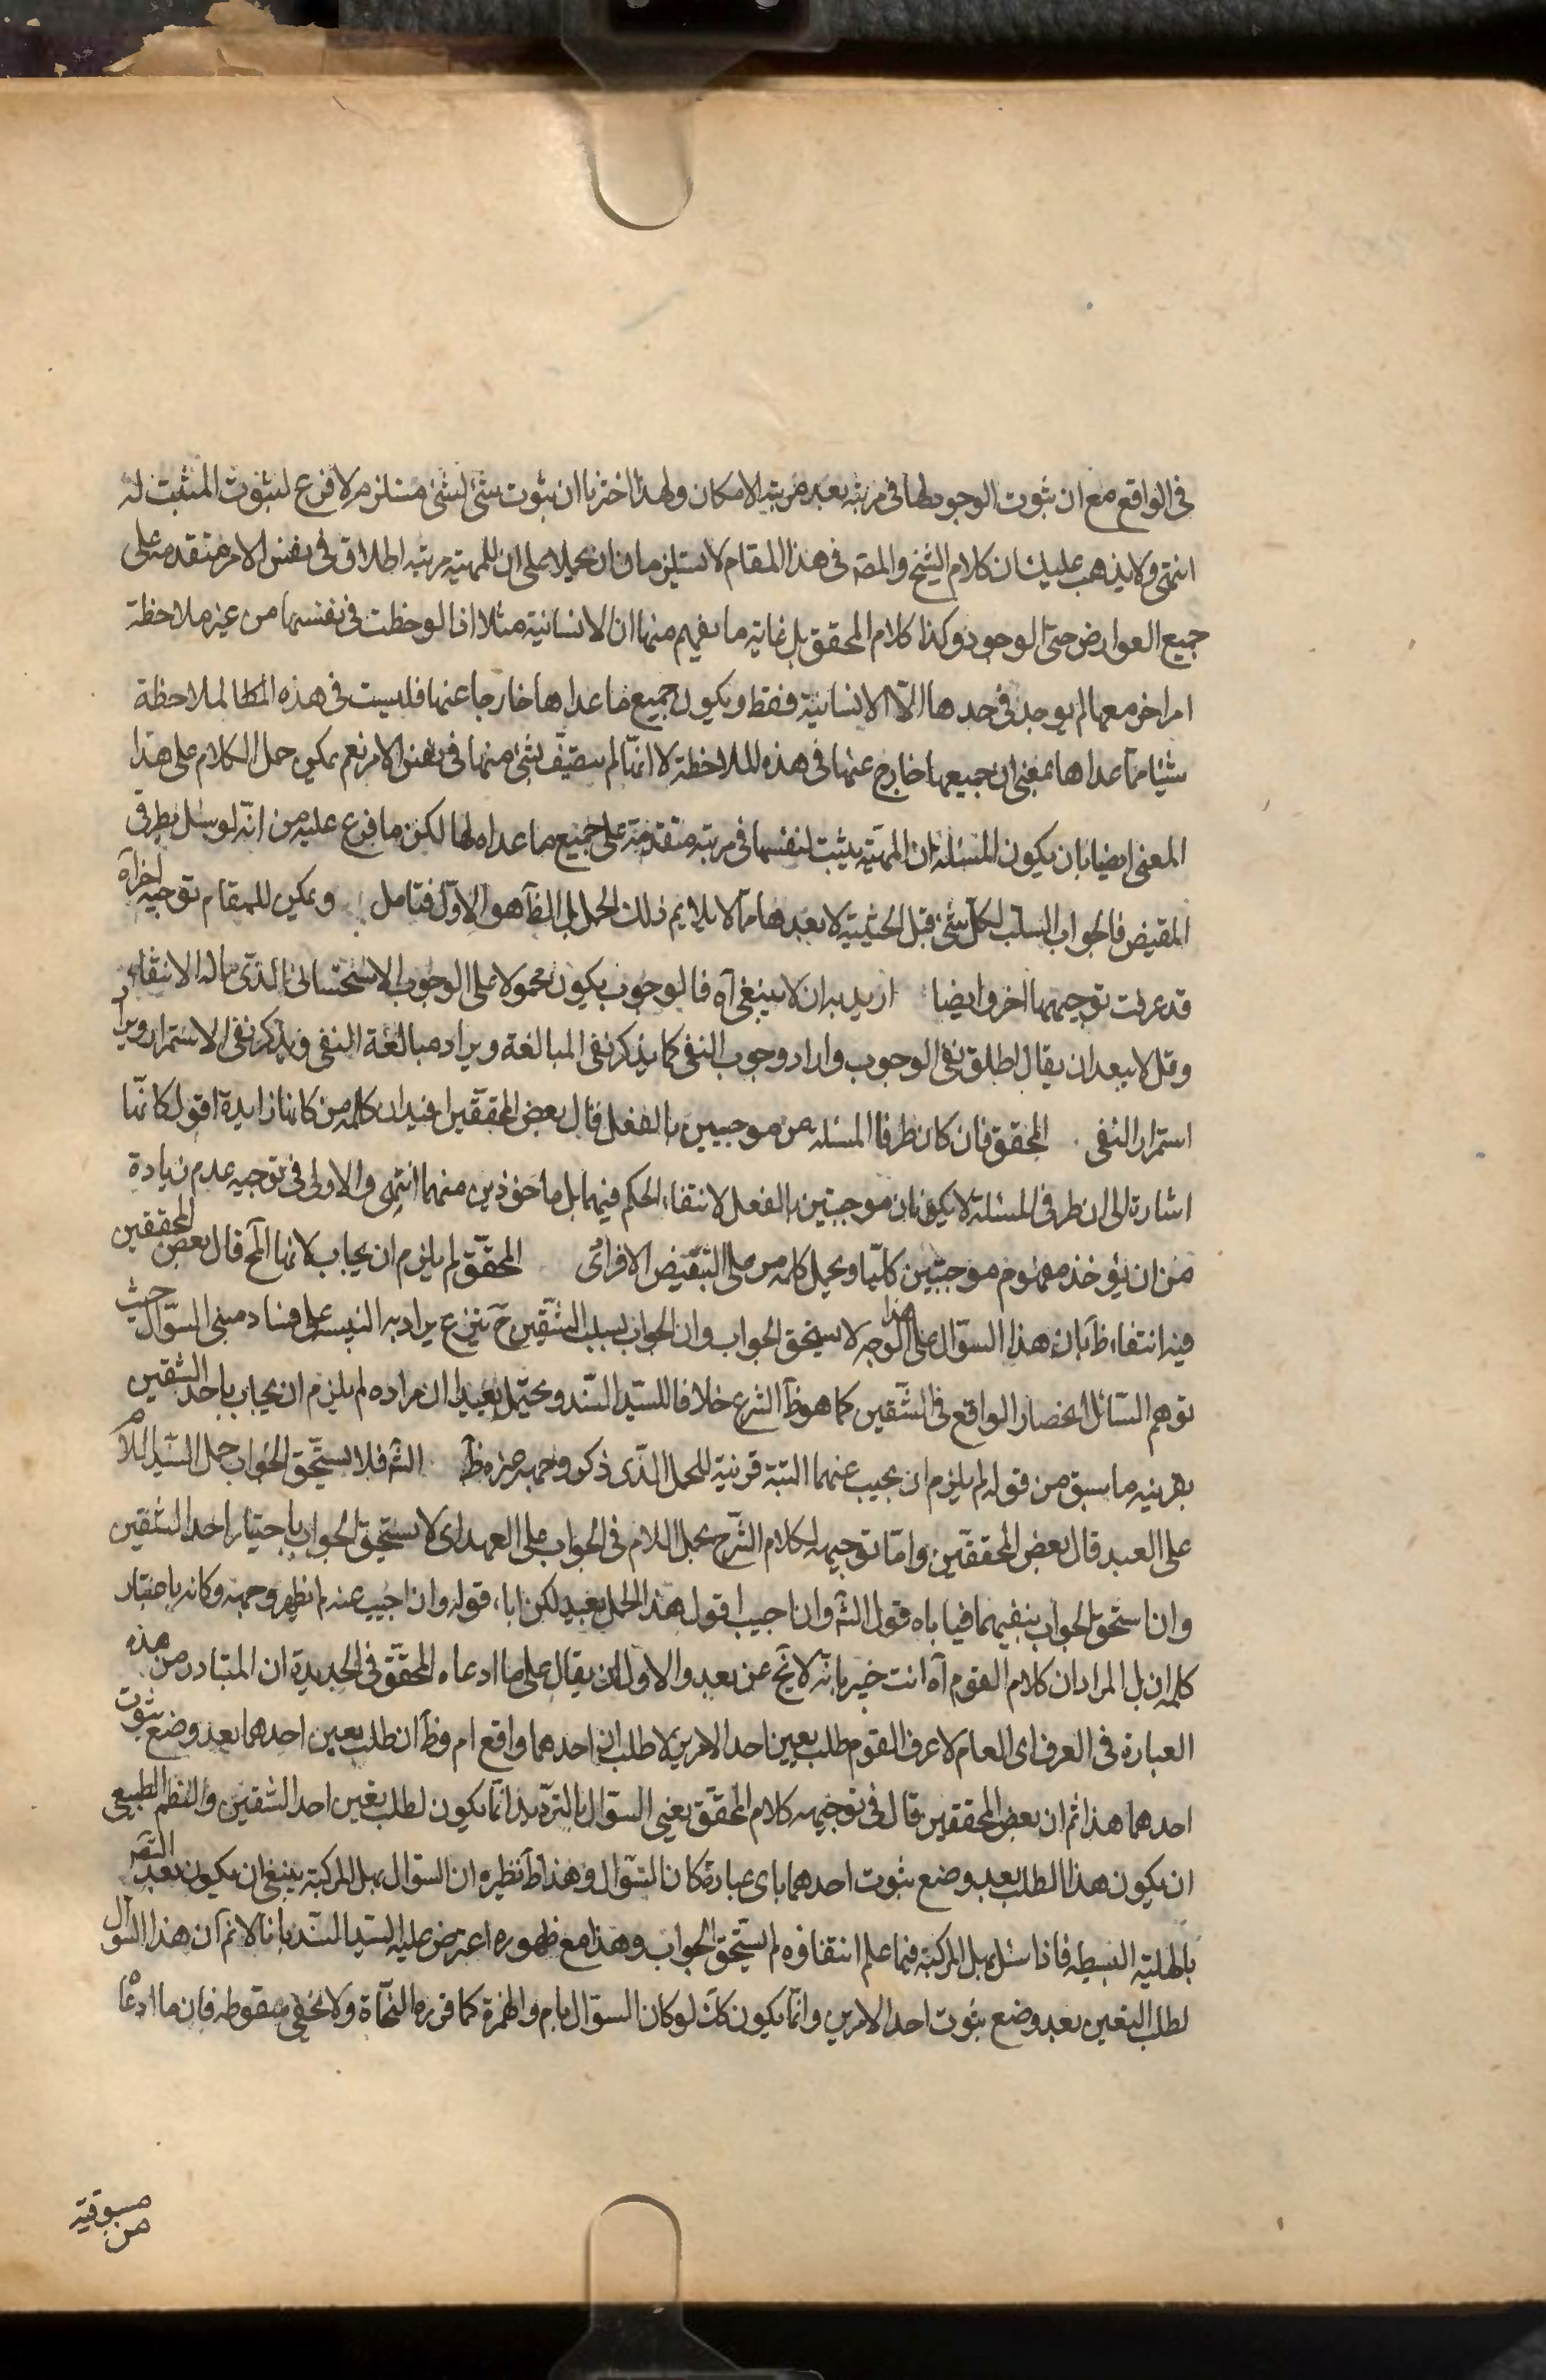 في الواقع مع ان ثبوت الوجود لها في مرتبة بعد مرتبة الامكان ولهذا اخترنا ان ثبوت شئ لشئ مستلزم لا فرع لثبوت المثبت له
انتهى ولا يذهب عليك ان كلام الشيخ والمصه في هذا المقام لا يستلزمان ان يحملا على ان للمهية مرتبة اطلاق في نفس الامر متقدمة على
جميع العوارض حتى الوجود وكذا كلام المحقق بل غاية ما يفهم منها ان الانسانية مثلا اذا لوحظت في نفسها من غير ملاحظة
امر اخر معها لم يوجد في حدها الّا الانسانية فقط ويكون جميع ما عداها خارجا عنها فليست في هذه الملاحظة
شيئا مما عداها بمعنى ان جميعها خارج عنها في هذه الملاحظة لا انها لم يتصف بشئ منها في نفس الامر نعم يمكن حمل الكلام على هذا
المعنى ايضا بان يكون المسئلة ان المهية يثبت لنفسها في مرتبة متقدمة على جميع ما عداه لها لكن ما فرع عليه من انه لو سئل بطرفي
النقيض فالجواب السلب لكل شئ قبل الحيثية لا بعدها مما لا يلايم ذلك الحمل بل الظاهر هو الاول فتامل ويمكن للمقام توجيه اخر آه
قد عرفت توجيهها اخر وايضا اريد به ان لا ينبغي آه فالوجوب يكون محمولا على الوجوب الاستحساني الذي ماله الانتفاء
وقل لا يبعد ان يقال اطلق نفى الوجوب واراد وجوب النفى كما يذكر نفى المبالغة ويراد مبالغة النفى ويذكر نفى الاستمرار ويراد
استمرار النفى المحقق فان كان طرفا المسئلة من موجبين بالفعل قال بعض المحققين افيد ان كلمة من كانها زايدة اقول كانها
اشارة الى ان طرفى المسئلة لا يكونان موجبتين بالفعل لانتفاء الحكم فيهما بل ماخوذين منهما انتهى والاولى في توجيه عدم زيادة
من ان يؤخذ مفهوم موجبتين كليا ويحمل كلمة من على التبعيض الافرادى المحقق لم يلزم ان يجاب لانها الخ قال بعض المحققين
فيه انتفاء ظ بان هذا السؤال على هذا الوجه لا يستحق الجواب وان الجواب بسلب الشقين ح تبرع يراد به التنبيه على فساد مبنى السؤال حيث
توهم السائل انحصار الواقع في الشقين كما هو ظ الشرع خلافا للسيد السند ويحتمل بعيدا ان مراده لم يلزم ان يجاب باحد الشقين
بقرينة ما سبق من قوله لم يلزم ان يجيب عنهما البتة قرينة للحمل الذي ذكره وجه ضره ظ الشه فلا يستحق الجواب حمل السيد اللام
على العهد قال بعض المحققين واما توجيهه لكلام الشرح بحمل اللام في الجواب على العهد اى لا يستحق الجواب باختيار احد الشقين
وان استحق الجواب بنفيهما فيا باه قول الشه وان اجيب اقول هذا الحمل بعيد لكن اباء قوله وان اجيب عنه لم يظهر وجهه وكانه باعتبار
كلمة ان بل المراد ان كلام القوم آه انت خبير بانه لا يخ عن بعد والاولى ان يقال على ما ادعاه المحقق في الجديدة ان المتبادر من هذه
العبارة في العرف اى العام لا عرف القوم طلب تعيين احد الامرين لا طلب ان احدهما واقع ام وظ ان طلب تعيين احدهما بعد وضع ثبوت
احدهما هذا ثم ان بعض المحققين قال في توجيهه كلام المحقق يعنى السؤال بالترديد انما يكون لطلب تعيين احد الشقين والنظم الطبيعي
ان يكون هذا الطلب بعد وضع ثبوت احدهما باى عبارة كان السؤال وهذا ظ نظيره ان السؤال بهل المركبة ينبغى ان يكون بعد التصر
بالهلية البسيطة فاذا سئل بهل المركبة فيما علم انتفاؤه لم يستحق الجواب وهذا مع ظهوره اعترض عليه السيد السند بانا لا نم ان هذا السؤال
لطلب التعيين بعد وضع ثبوت احد الامرين وانما يكون كك لو كان السؤال بام والهمزة كما قرره النحاة ولا يخفى سقوطه فان ما ادعاه
مسبوقية
من